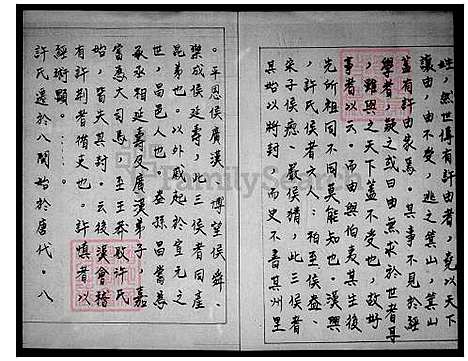 姓，然世傳有許由者，堯以天下
讓由，由不受，逃之箕山，箕山
蓋有許由冢焉。其事不見於經
學者疑之或曰由無求於世者耳
，雖與之天下蓋不受也，故好
事者以云。而由與伯夷其生後
先所祖同不同莫能知也。漢興
，許氏侯者六人：柏至侯盎、
宋子侯瘛、嚴侯猜，此三侯者
其始以將封，而史不書其州里
。平恩侯廣漢、博望侯舜、
樂成侯延壽，此三侯者同產
昆弟也。以外戚起於宣元之
世，昌邑人也。盎孫昌嘗為
丞丞相延壽及廣漢弟子，嘉
嘗為大司馬。至王莽敗許氏
始，皆失其封。云後漢會稽
有許荊者循吏也。許慎者以
經術顯。
許氏遷於八閩始於唐代。八
FamilySearch